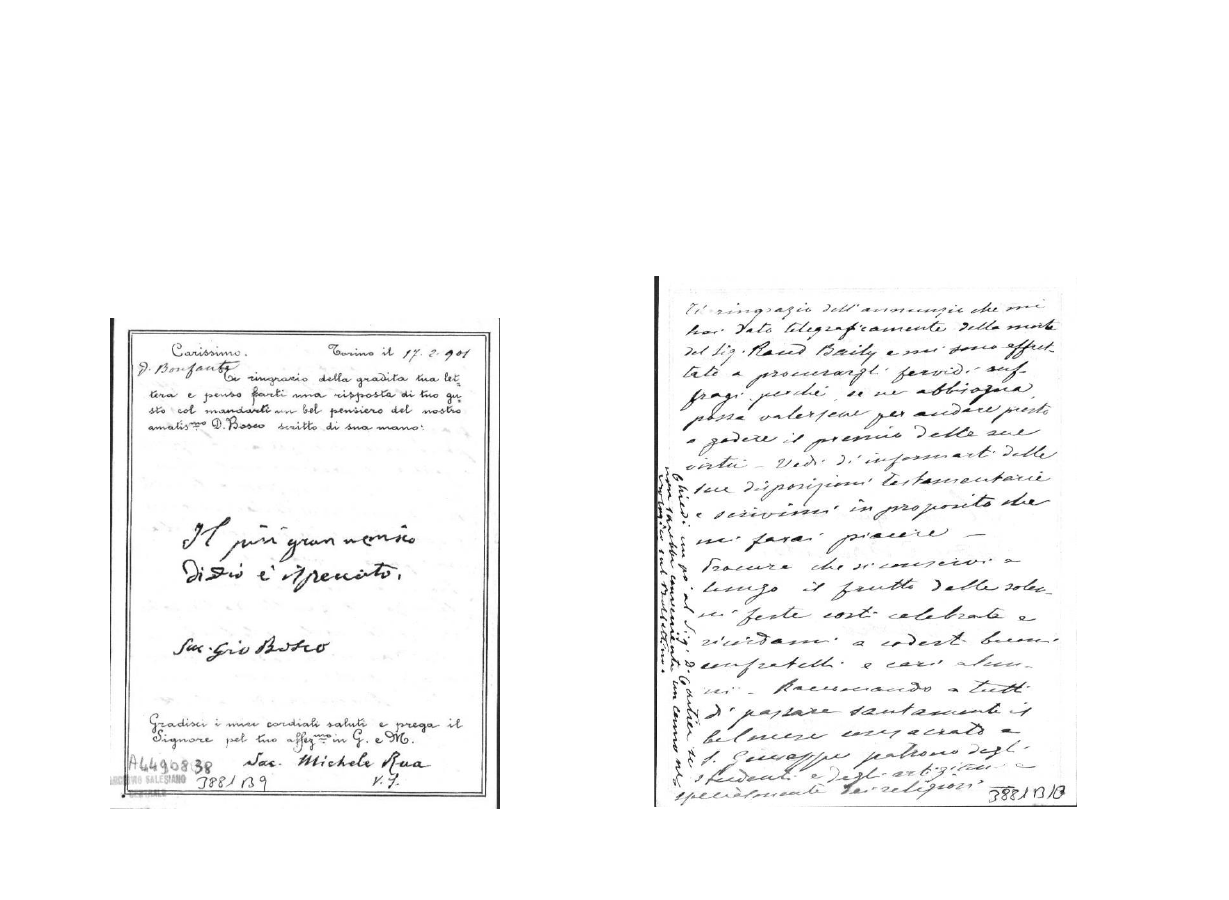 Carissimo. Torino il 17. 2. 901
D. Bonfante
Ti ringrazio della gradita tua let-
tera e penso farti una risposta di tuo gu-
sto col mandarti un bel pensiero del nostro
amatismo D. Bosco scritto di sua mano:
Il più gran nemico
di Dio è il peccato.
Sac. Gio Bosco
Gradisci i miei cordiali saluti e prega il
Signore pel tuo affezmo in G. e M.
Sac. Michele Rua
A4490838
ARCHIVIO SALESIANO
CENTRALE
3881 B9
Ti ringrazio dell'annunzio che mi
hai dato telegraficamente della morte
del Sig. Baily e mi sono affret-
tato a procurargli fervidi suf-
fragi perché, se ne abbisogna,
possa valersene per andare presto
a godere il premio delle sue
virtù - Vedi di informarti delle
sue disposizioni testamentarie
e scrivimi in proposito che
mi farai piacere -
Procura che si conservi a
lungo il frutto delle solen-
ni feste costì celebrate e
ricordami a codesti buoni
confratelli e cari alun-
ni - Raccomando a tutti
di passare santamente il
bel mese consacrato a
S. Giuseppe patrono degli
studenti e degli artigiani e
specialmente dei religiosi
Chiedi un po' al Sig. D. Cartier se
non sarebbe conveniente un cenno ne-
crologico sul Bollettino.
3881 B10